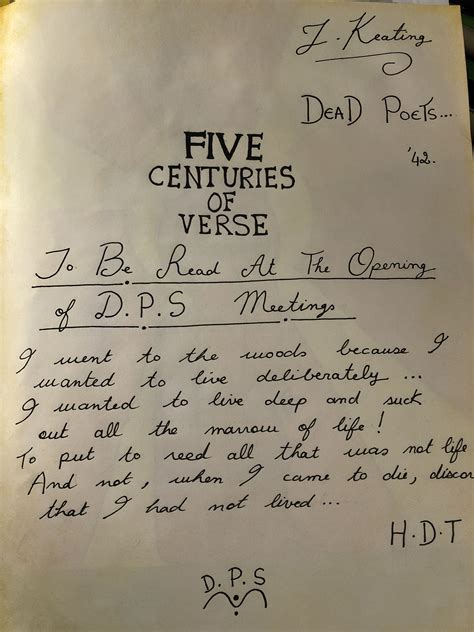 J. Keating
DEAD POETS...
'42.
FIVE
CENTURIES
OF
VERSE
To Be Read At The Opening
of D.P.S Meetings
I went to the woods because I
wanted to live deliberately ...
I wanted to live deep and suck
out all the marrow of life !
To put to reed all that was not life
And not, when I came to die, discov
that I had not lived ...
H.D.T
D.P.S